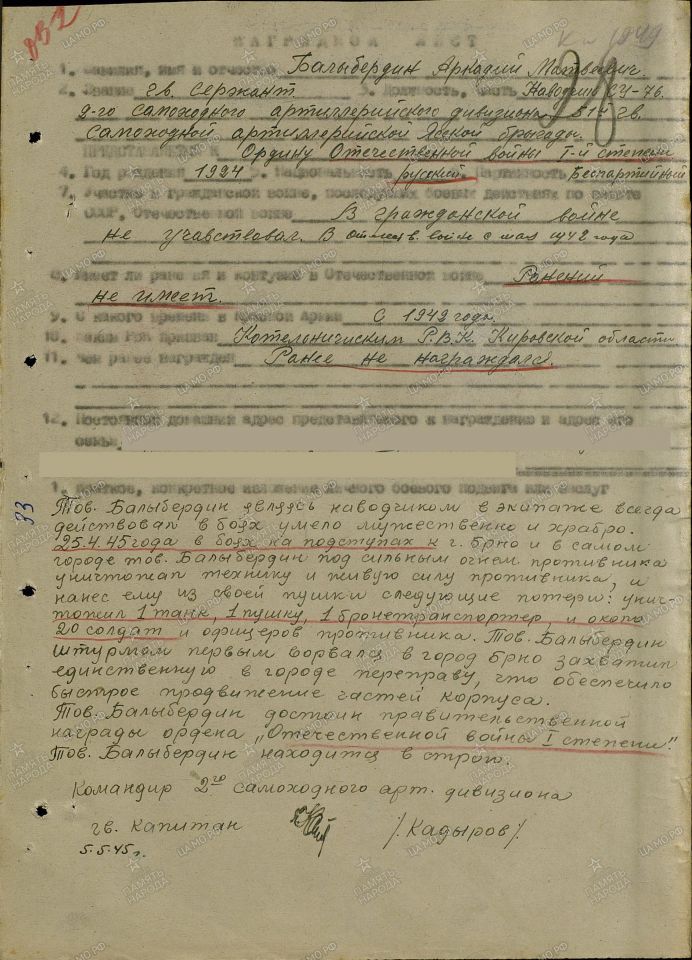 932
К-1949
НАГРАДНОЙ ЛИСТ
1. Фамилия, имя и отчество Балыбердин Аркадий Матвеевич
2. Звание гв. Сержант 3. Должность, часть Наводчик СУ-76
2-го самоходного артиллерийского дивизиона 51 гв.
самоходной артиллерийской Ясской бригады.
ПРЕДСТАВЛЯЕТСЯ К Ордину Отечественной войны I-й степени
4. Год рождения 1924 5. Национальность русский. Партийность Беспартийный
7. Участие в гражданской войне, последующих боевых действиях по защите
СССР, Отечественной войне В гражданской войне
не учавствовал. В отечеств. войне с мая 1942 года
8. Имеет ли ранения и контузии в Отечественной войне Ранений
не имеет.
9. С какого времени в Красной Армии С 1942 года.
10. Каким РВК призван Котельничиским Р.В.К. Кировской области
11. Чем ранее награжден Ранее не награждался.
12. Постоянный домашний адрес представляемого к награждению и адрес его
семьи
1. Краткое, конкретное изложение личного боевого подвига или заслуг
33
Тов. Балыбердин являясь наводчиком в экипаже всегда
действовал в боях умело мужественно и храбро.
25.4.45 года в боях на подступах к г. Брно и в самом
городе тов. Балыбердин под сильным огнем противника
уничтожал технику и живую силу противника, и
нанес ему из своей пушки следующие потери: унич-
тожил 1 танк, 1 пушку, 1 бронетранспортер, и около
20 солдат и офицеров противника. Тов. Балыбердин
штурмом первым ворвался в город Брно захватил
единственную в городе переправу, что обеспечило
быстрое продвижение частей корпуса.
Тов. Балыбердин достоин правительственной
награды ордена „Отечественной войны I степени".
Тов. Балыбердин находится в строю.
Командир 2го самоходного арт. дивизиона
гв. капитан /Кадыров/.
5.5.45 г.
ПАМЯТЬ НАРОДА
ЦАМО.РФ